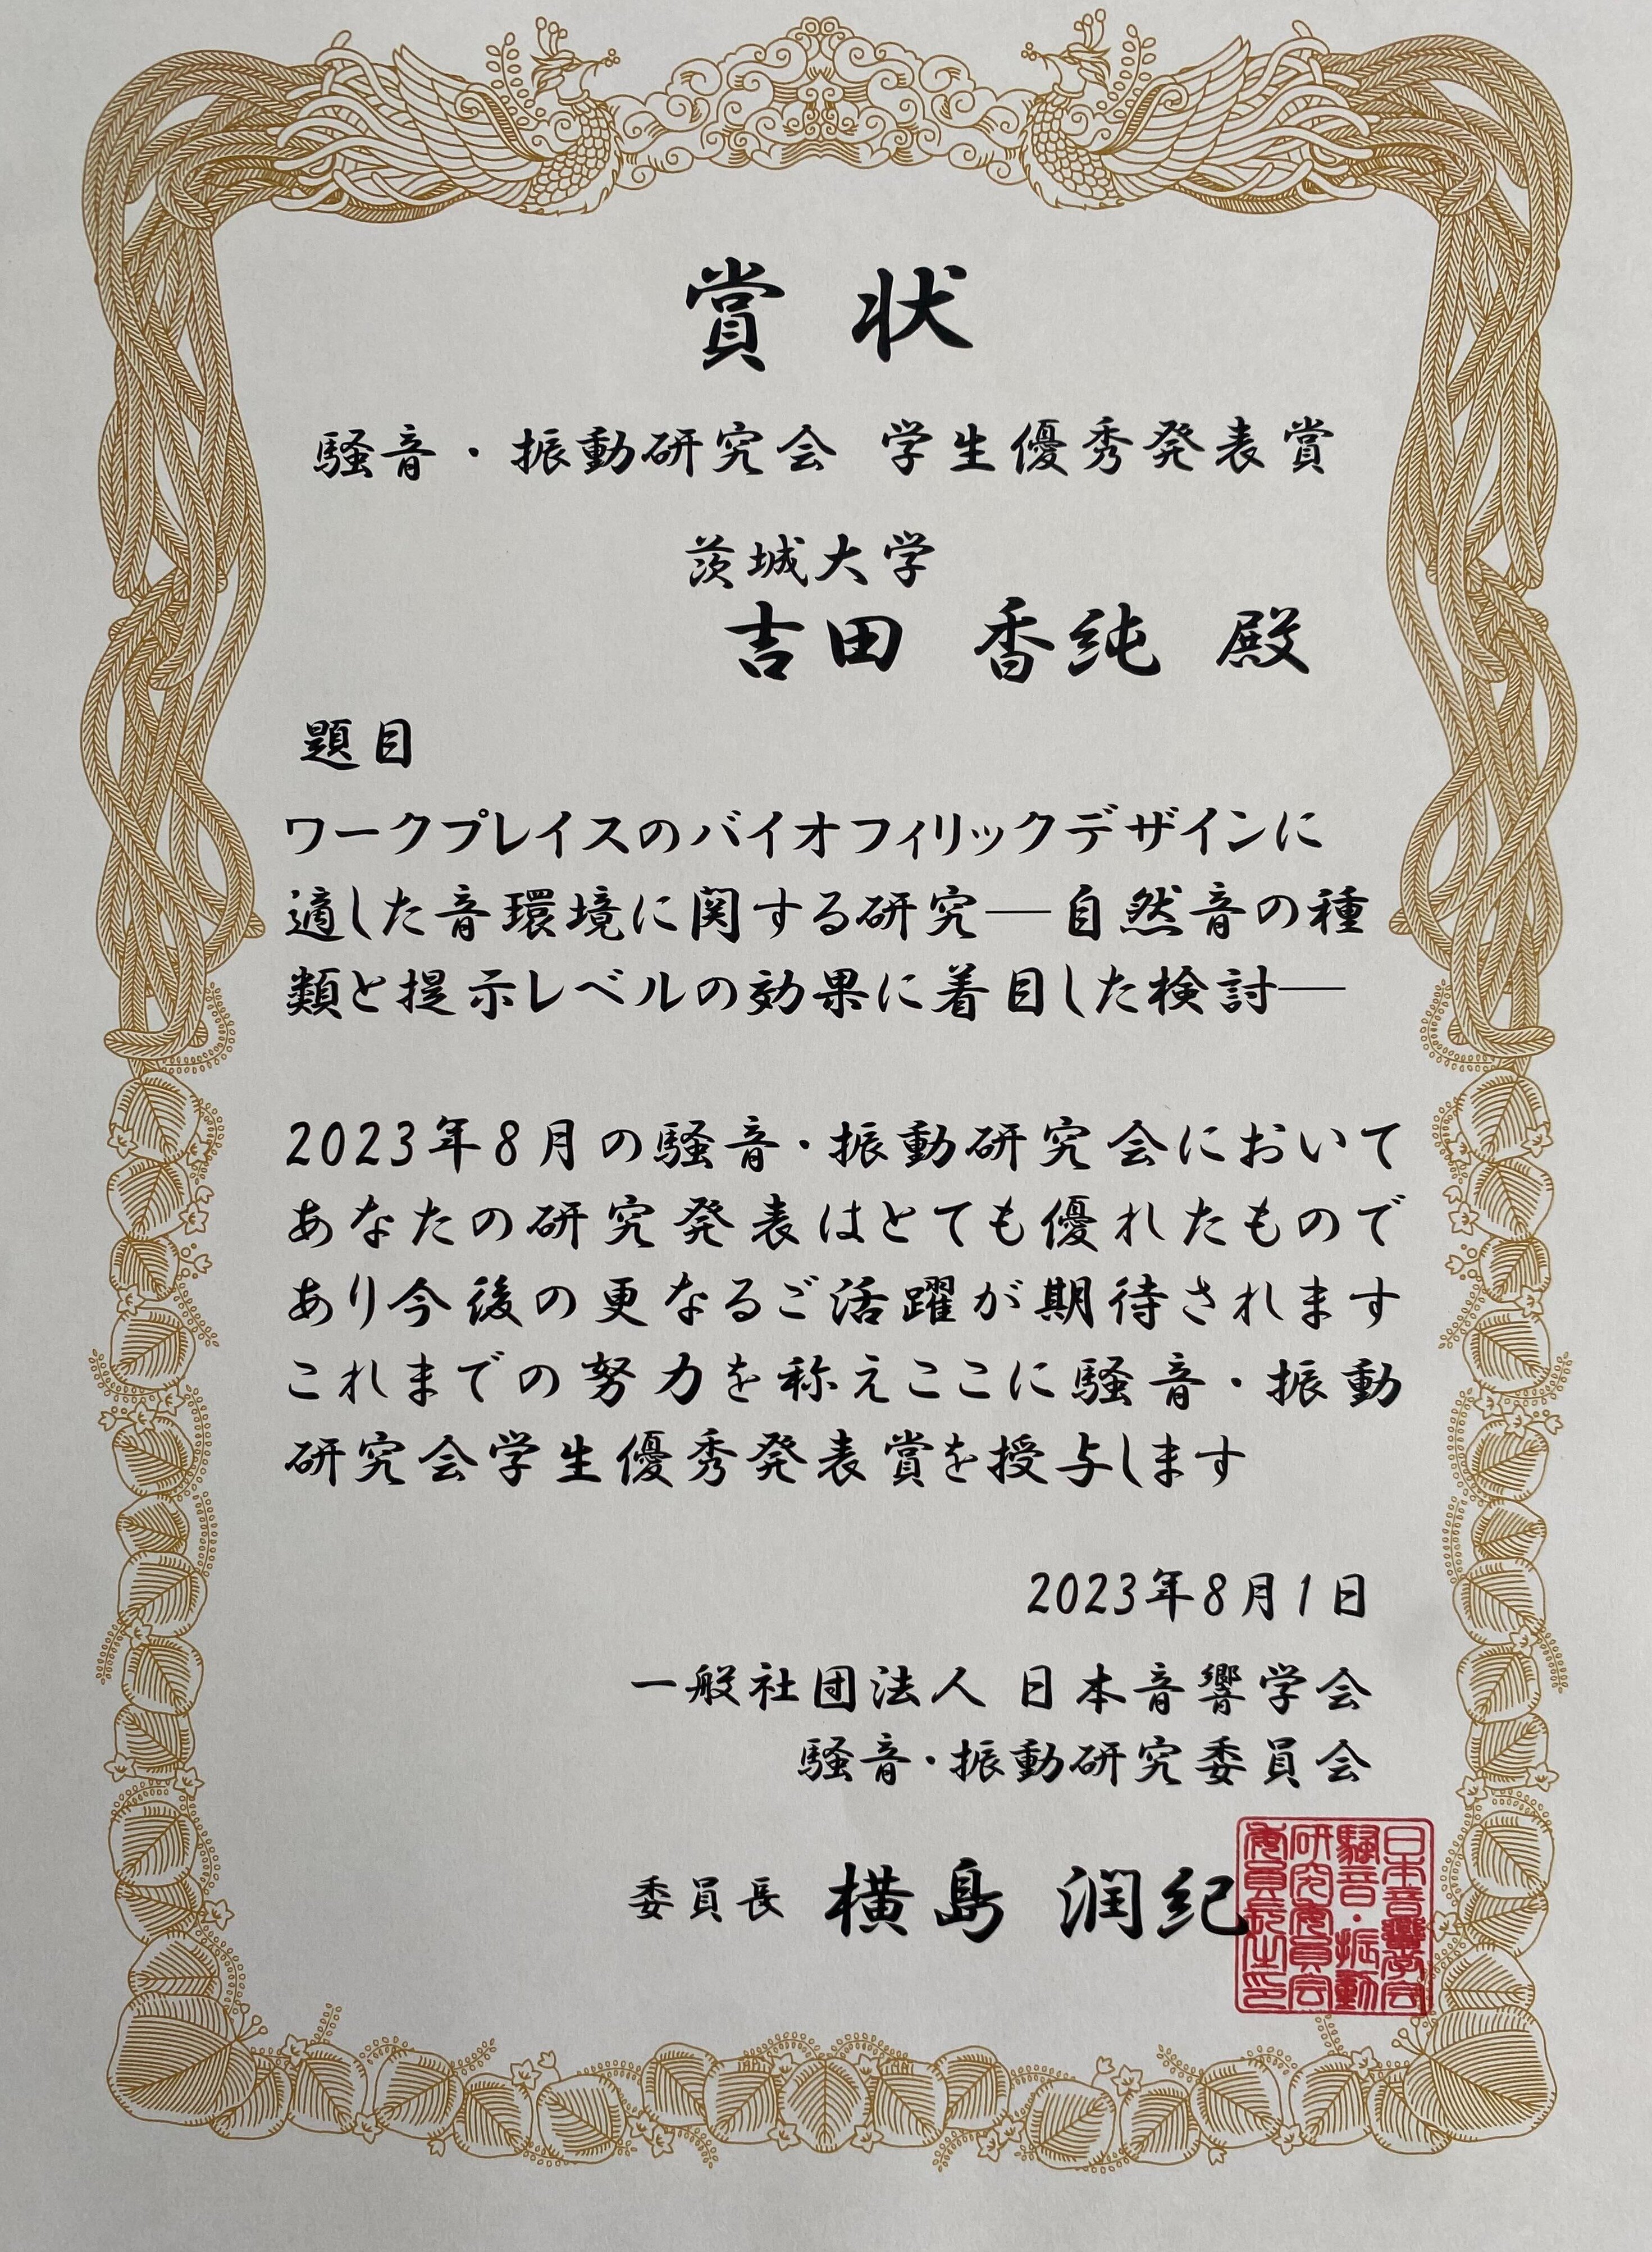 賞状
騒音・振動研究会 学生優秀発表賞
茨城大学
吉田 香純 殿
題目
ワークプレイスのバイオフィリックデザインに
適した音環境に関する研究―自然音の種
類と提示レベルの効果に着目した検討―
2023年8月の騒音・振動研究会において
あなたの研究発表はとても優れたもので
あり今後の更なるご活躍が期待されます
これまでの努力を称えここに騒音・振動
研究会学生優秀発表賞を授与します
2023年8月1日
一般社団法人 日本音響学会
騒音・振動研究委員会
委員長 横島 潤紀
日本音響学会
騒音・振動
研究委員会
委員長之印